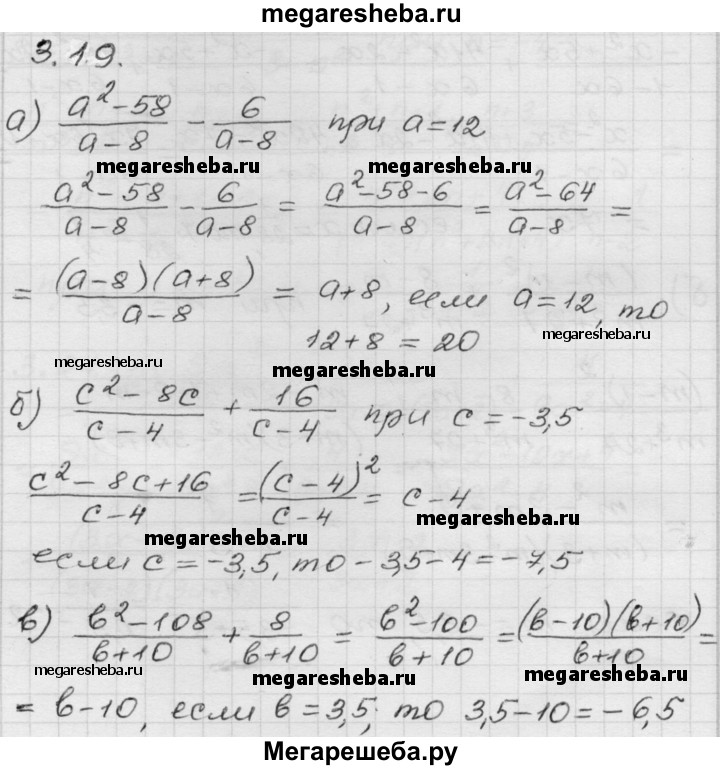 megaresheba.ru
3.19.
а) (a² – 58)/(a – 8) – 6/(a – 8) при a = 12
megaresheba.ru megaresheba.ru
(a² – 58)/(a – 8) – 6/(a – 8) = (a² – 58 – 6)/(a – 8) = (a² – 64)/(a – 8) =
= ((a – 8)(a + 8))/(a – 8) = a + 8, если a = 12, то
megaresheba.ru
12 + 8 = 20
megaresheba.ru
megaresheba.ru
б) (c² – 8c)/(c – 4) + 16/(c – 4) при c = –3,5
(c² – 8c + 16)/(c – 4) = (c – 4)²/(c – 4) = c – 4
megaresheba.ru
megaresheba.ru
если c = –3,5, то –3,5 – 4 = –7,5
в) (b² – 108)/(b + 10) + 8/(b + 10) = (b² – 100)/(b + 10) = ((b – 10)(b + 10))/(b + 10) =
megaresheba.ru megaresheba.ru megaresheba.ru
= b – 10, если b = 3,5; то 3,5 – 10 = –6,5
Мегарешеба.ру